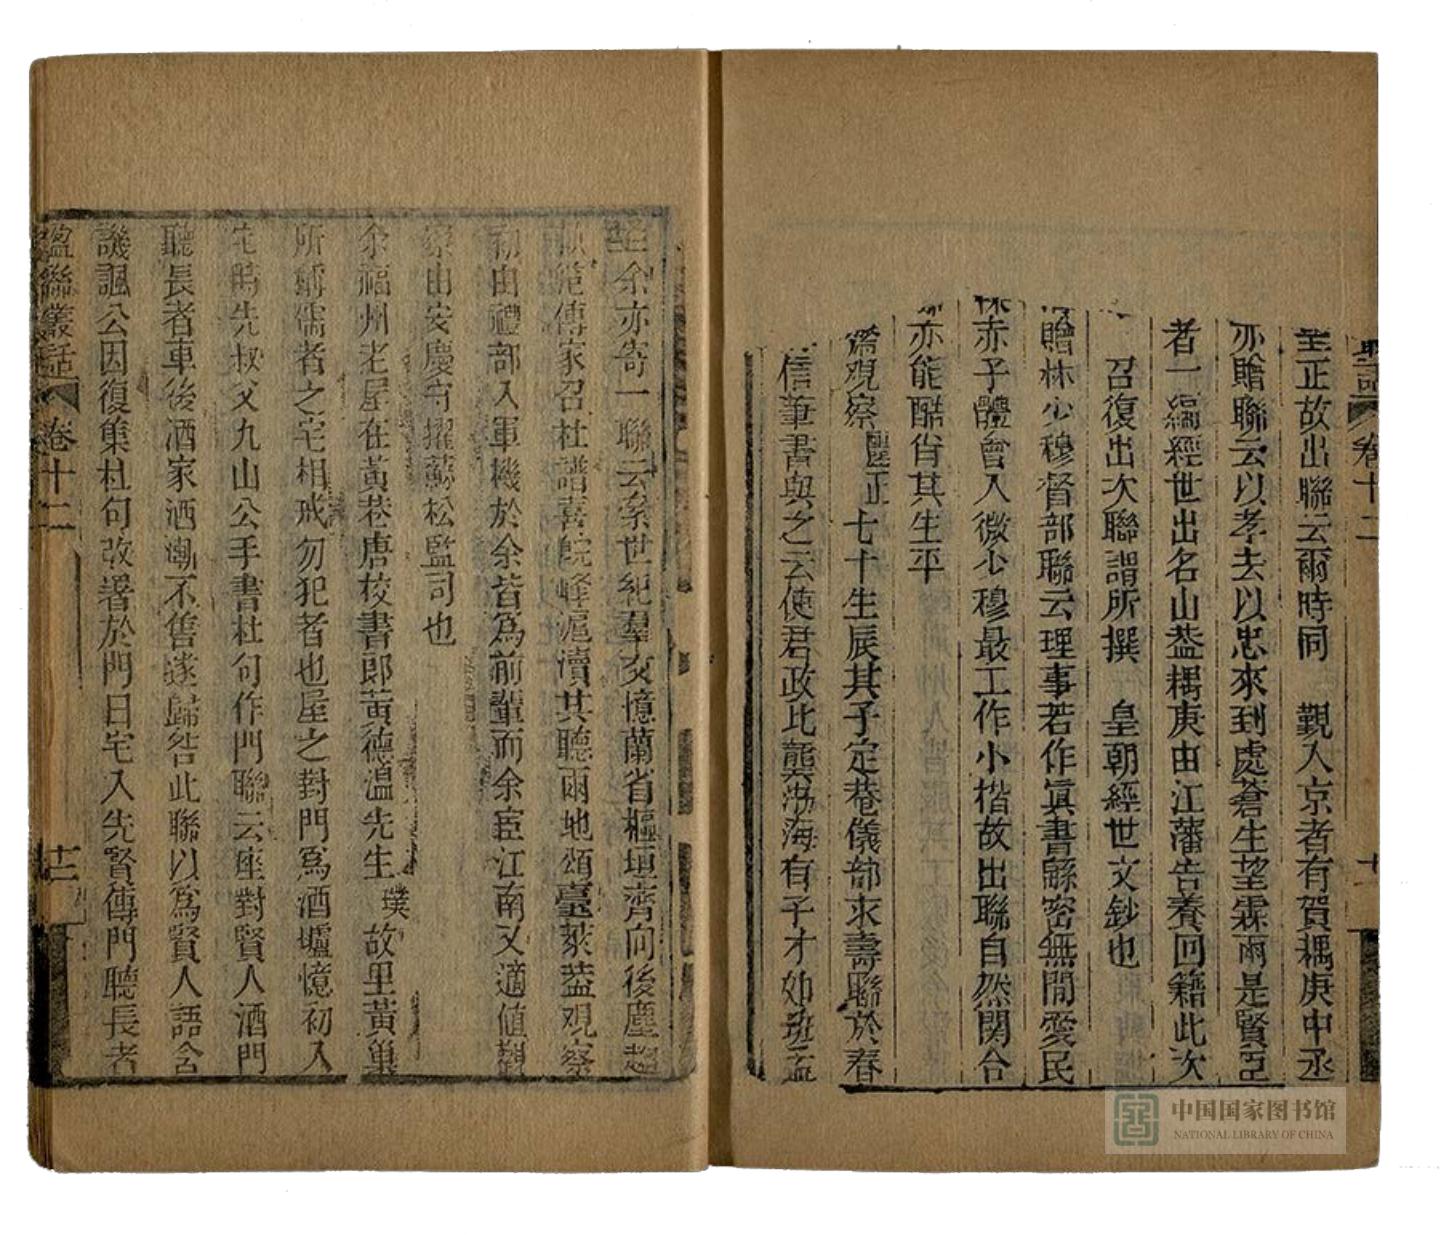 卷十二
至正故出聯云爾時同 覲入京者有賀耦庚中丞
亦贈聯云以孝去以忠來到處蒼生望霖雨是賢臣
者一編經世出名山葢耦庚由江藩告養回籍此次
召復出次聯謂所撰 皇朝經世文鈔也
贈林少穆督部聯云理事若作眞書緜密無閒愛民
赤子體會入微少穆最工作小楷故出聯自然關合
亦能酷肖其生平
觀察 麗正 七十生辰其子定菴儀部求壽聯於春
信筆書與之云使君政比龔渤海有子才如班孟
余亦寄一聯云系世紀羣交憶蘭省樞垣齊向後塵趨
傳家召杜譜喜皖峰滬瀆其聽雨地頌臺萊葢觀察
由禮部入軍機於余皆爲前輩而余宦江南又適値觀
察由安慶守擢蘇松監司也
余福州老屋在黃巷唐校書郎黃德溫先生 璞 故里黃巢
所謂儒者之宅相戒勿犯者也屋之對門爲酒壚憶初入
宅時先叔父九山公手書杜句作門聯云座對賢人酒門
聽長者車後酒家酒漸不售遂歸咎此聯以爲賢人語含
譏諷公因復集杜句改署於門曰宅入先賢傳門聽長者
楹聯叢話 卷十二 十二
中国国家图书馆
NATIONAL LIBRARY OF CHINA